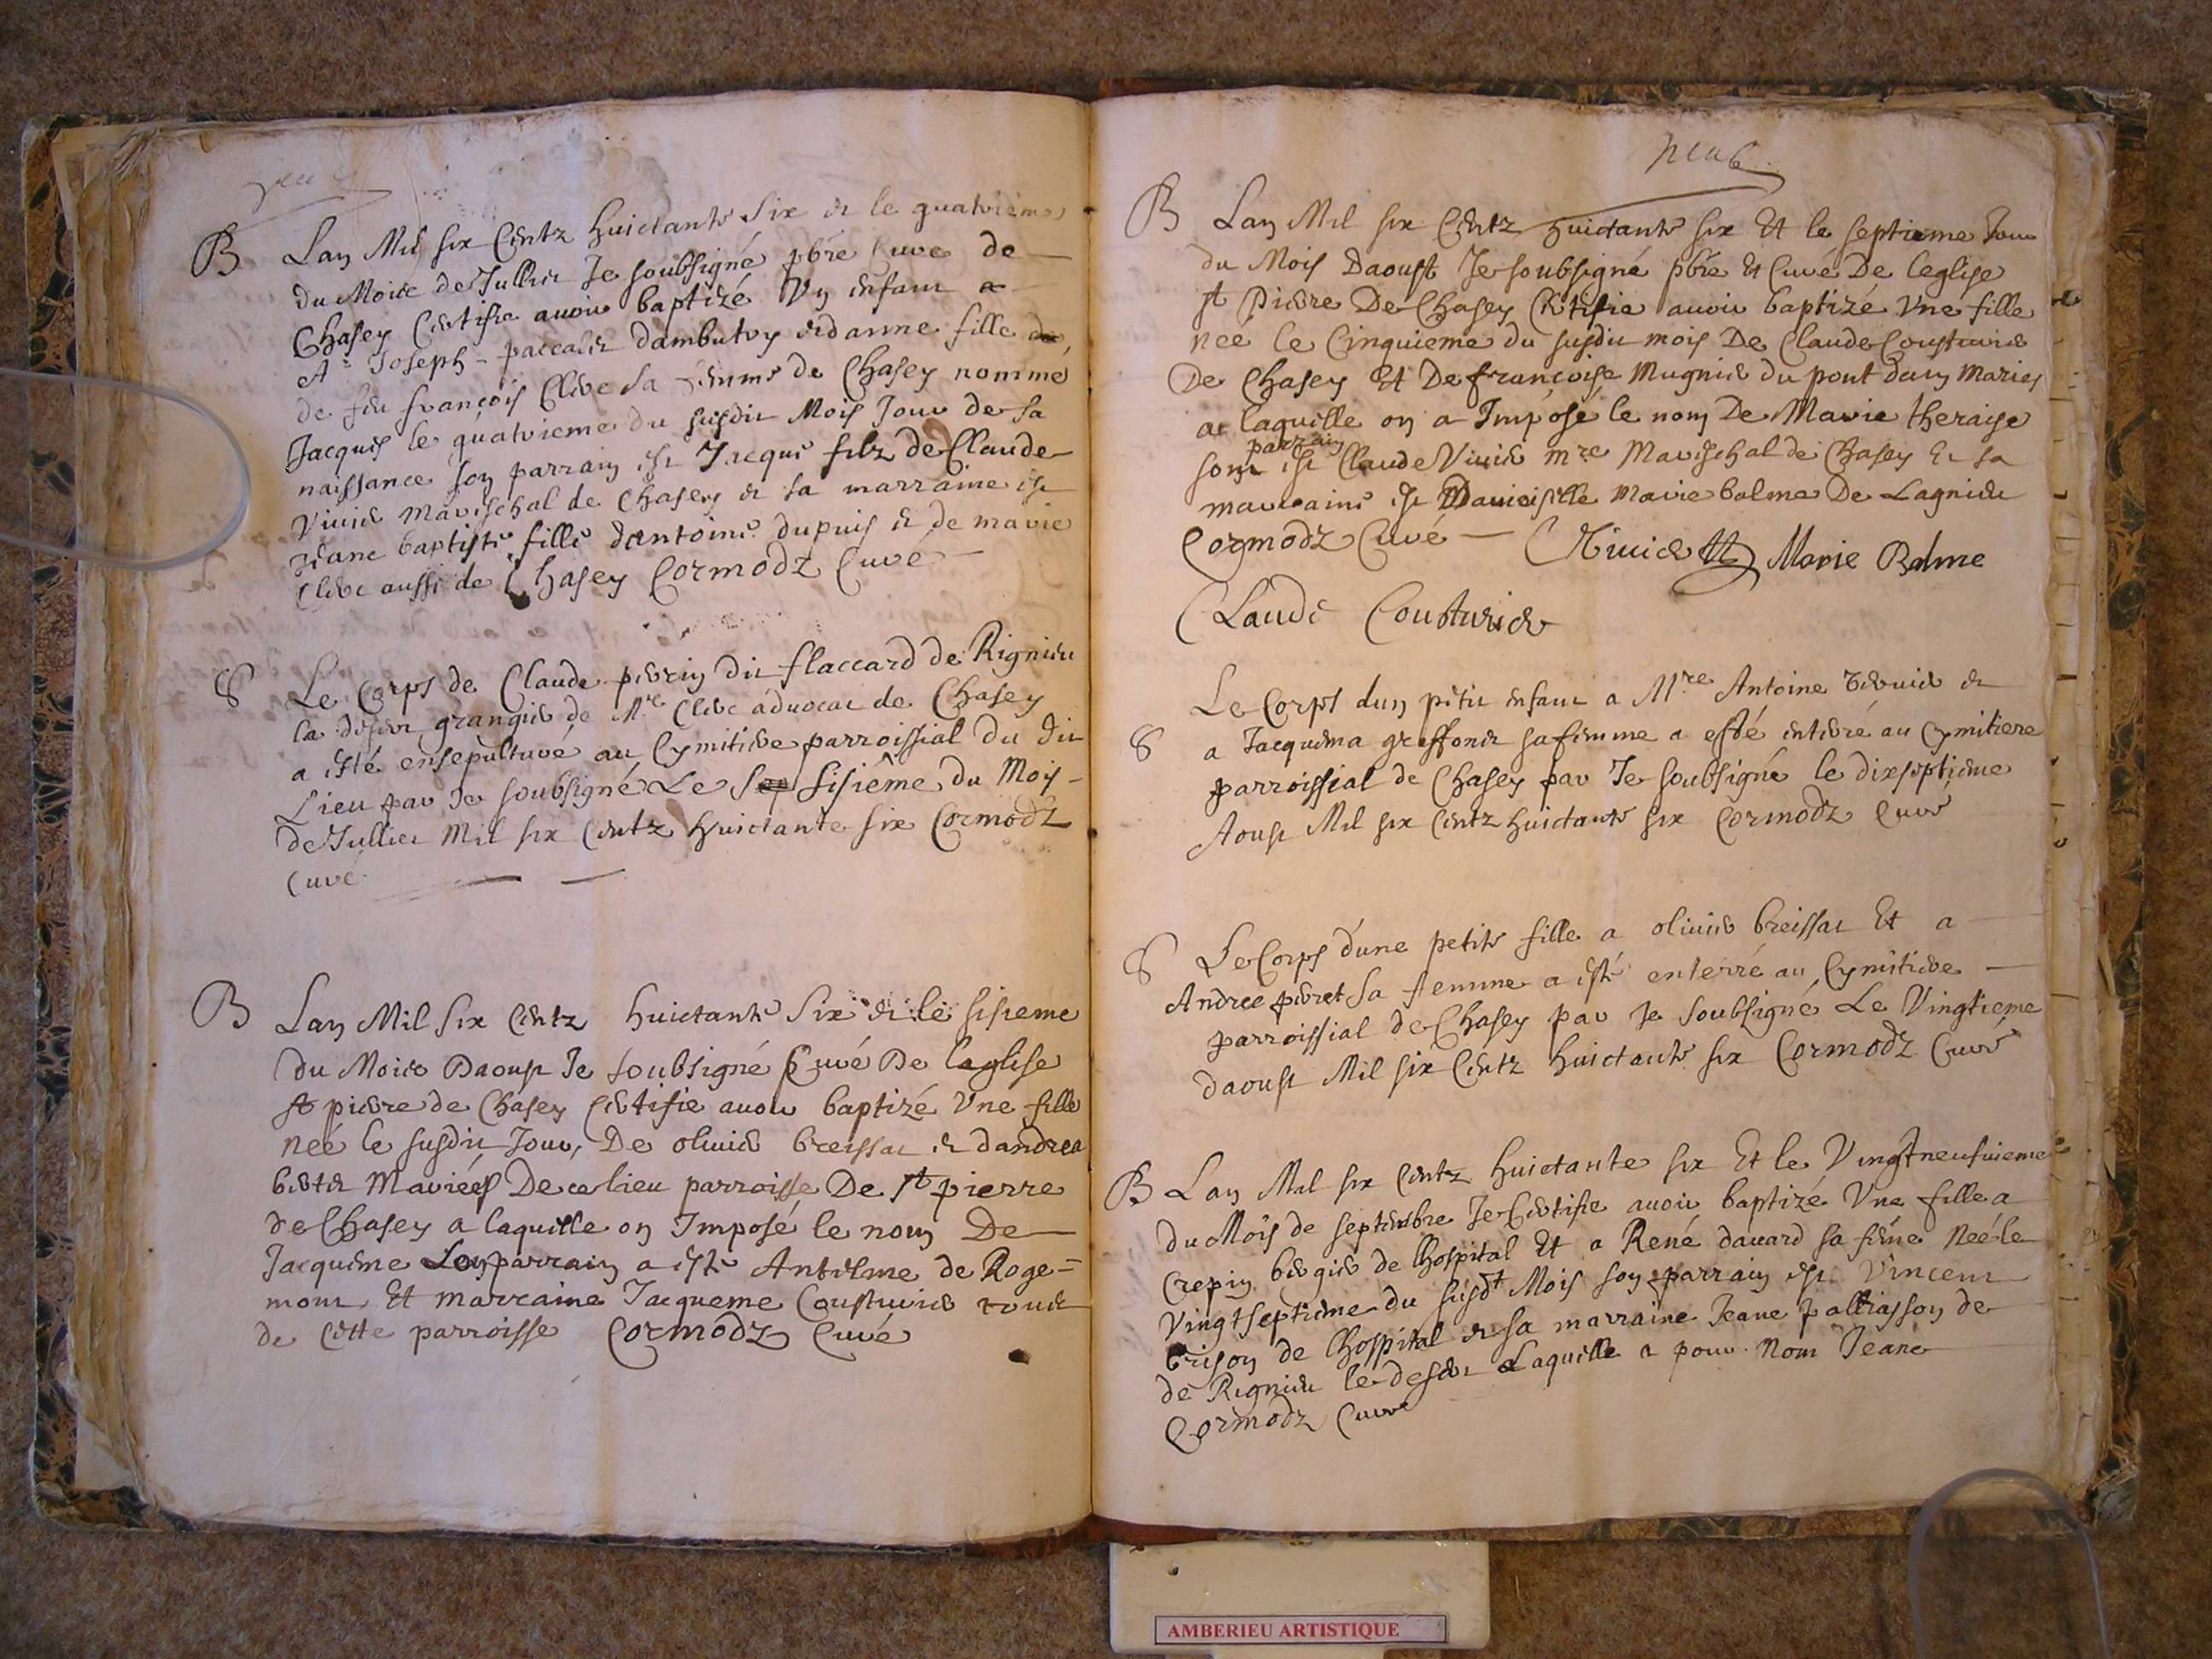 B Lan Mil six Centz huictante six et le quatrieme
du Moire de Jullier Je soubsigné pbre Curé de
Chasey Certifie avoir baptizé Un enfant a
Joseph paccalet dambutry et danne fille de
de feu françois Clerc sa femme de Chasey nommé
Jacques le quatrieme du susdit Mois Jour de sa
naissance son parrain est Jacque filz de Claude
Vivier mareschal de Chasey et sa marraine est
Jeane baptiste fille dantoine dupuis et de marie
Clerc aussi de Chasey Cormodz Curé
S Le Corps de Claude perrin dit flaccard de Rignieu
la desert grangier de Mre Clerc aduocat de Chasey
a esté ensepulturé au Cymitiere parroissial du dit
Lieu par Je soubsigné Le Sisiême du Mois
de Jullier Mil six Centz huictante six Cormodz
Curé
B Lan Mil Six Centz huictante Six et le sisieme
du Moire Daoust Je soubsigné Curé De laglise
st pierre de Chasey Certifie avoir baptizé Une fille
neé le susdit Jour, De olivier breissat et dandrea
bertet Mariéés De ce lieu parroisse De st pierre
de Chasey a laquelle on Imposé le nom De
Jacqueme Son parrain a esté Antelme de Roge=
mont Et marraine Jacqueme Cousturier tout
de Cette parroisse Cormodz Curé
B Lan Mil six Centz huictante six Et le septieme Jour
du Mois Daoust Je soubsigné pbre Et Curé De leglise
st Pierre De Chasey Certifie avoir baptizé Une fille
neé le Cinquieme du susdit mois De Claude Cousturier
De Chasey Et De françoise Mugnier du pont dain Maries
a laquelle on a Imposé le nom De Marie theraise
parrain
son est Claude Vivier mre Mareschal de Chasey Et sa
marraine est Damoiselle Marie balme De Lagnieu
Cormodz Curé C Vivier Marie Balme
Claude Cousturier
Le Corps dun petit enfant a Mre Antoine et
S a Jacquema greffonet sa femme a esté enterré au Cymitiere
parroissial de Chasey par Je soubsigné le dixseptieme
Aoust Mil six Centz huictante six Cormodz Curé
S Le Corps d'une petite fille a olivier breissat Et a
Andree perret Sa femme a esté enterré au Cymitiere
parroissial de Chasey par Je Soubsigné Le Vingtieme
daoust Mil six Centz huictante six Cormodz Curé
B Lan Mil six Centz huictante six Et le Vingtneufuieme
du Mois de septembre Je Certifie avoir baptizé Une fille a
Crepin bergier de lhospital Et a René davard sa feme Neé le
Vingtseptieme du susdt Mois son parrain est Vincent
brison de lhospital et sa marraine Jeane palliasson de
de Rignieu le desert Laquelle a pour Nom Jeane
Cormodz Curé
AMBERIEU ARTISTIQUE